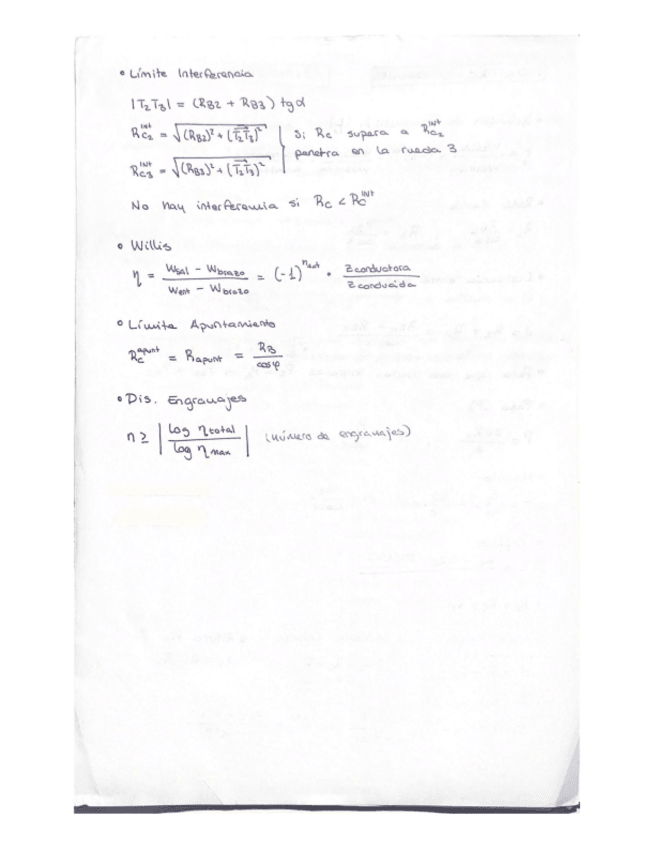 • Límite Interferencia
|T₂T₃| = (R_B2 + R_B3) tgα
R_C2^INT = √((R_B2)² + (T₂T₃)²)
si Rc supera a R_C2^INT
penetra en la rueda 3
R_C3^INT = √((R_B3)² + (T₂T₃)²)
No hay interferencia si Rc < Rc^INT
• Willis
η = (Wsal - Wbrazo)/(Went - Wbrazo) = (-1)^next · Zconductora/Zconducida
• Límite Apuntamiento
Rc^apunt = Rapunt = R_B/cosφ
• Dis. Engranajes
n ≥ |log ηtotal/log ηmax| (número de engranajes)